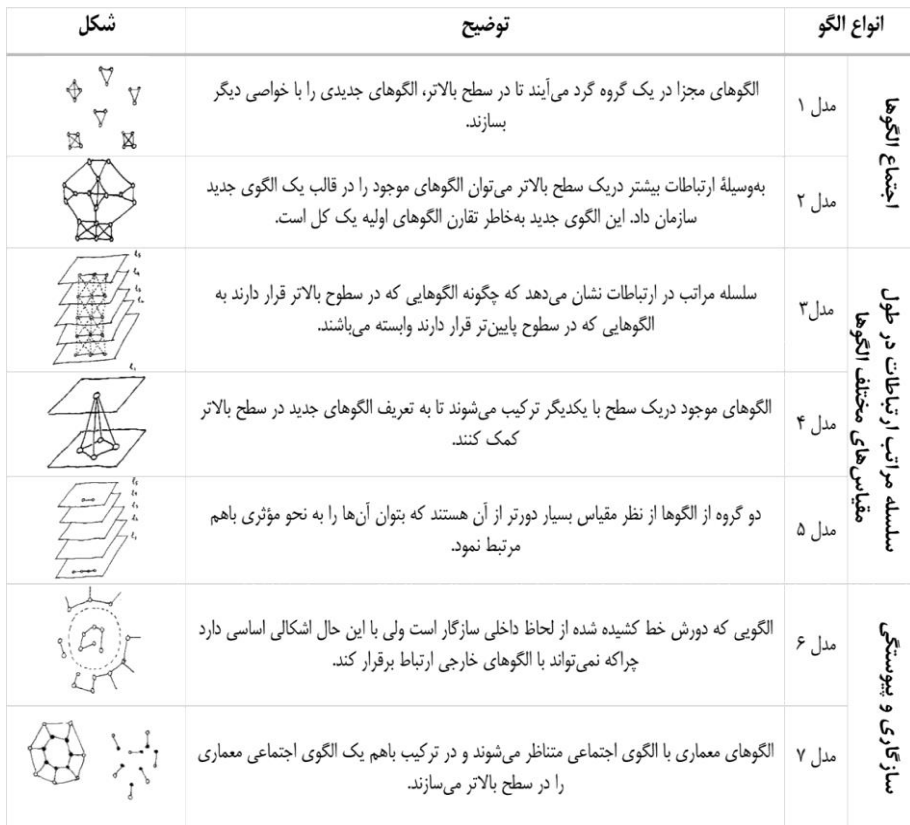 انواع الگو
توضیح
شکل
اجتماع الگوها
مدل ۱
الگوهای مجزا در یک گروه گرد می‌آیند تا در سطح بالاتر، الگوهای جدیدی را با خواصی دیگر
بسازند.
مدل ۲
به‌وسیلهٔ ارتباطات بیشتر دریک سطح بالاتر می‌توان الگوهای موجود را در قالب یک الگوی جدید
سازمان داد. این الگوی جدید به‌خاطر تقارن الگوهای اولیه یک کل است.
سلسله مراتب ارتباطات در طول
مقیاس‌های مختلف الگوها
مدل۳
سلسله مراتب در ارتباطات نشان می‌دهد که چگونه الگوهایی که در سطوح بالاتر قرار دارند به
الگوهایی که در سطوح پایین‌تر قرار دارند وابسته می‌باشند.
مدل ۴
الگوهای موجود دریک سطح با یکدیگر ترکیب می‌شوند تا به تعریف الگوهای جدید در سطح بالاتر
کمک کنند.
مدل ۵
دو گروه از الگوها از نظر مقیاس بسیار دورتر از آن هستند که بتوان آن‌ها را به نحو مؤثری باهم
مرتبط نمود.
سازگاری و پیوستگی
مدل ۶
الگویی که دورش خط کشیده شده از لحاظ داخلی سازگار است ولی با این حال اشکالی اساسی دارد
چراکه نمی‌تواند با الگوهای خارجی ارتباط برقرار کند.
مدل ۷
الگوهای معماری با الگوی اجتماعی متناظر می‌شوند و در ترکیب باهم یک الگوی اجتماعی معماری
را در سطح بالاتر می‌سازند.